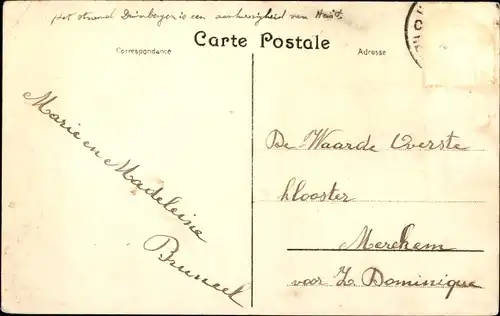 Het strand Duinbergen is een aanhorigheid van Heist.
Carte Postale
Correspondance
Adresse
Marie en Madeleine
Bruneel
De Waarde Overste
klooster
Merckem
voor Z. Dominique